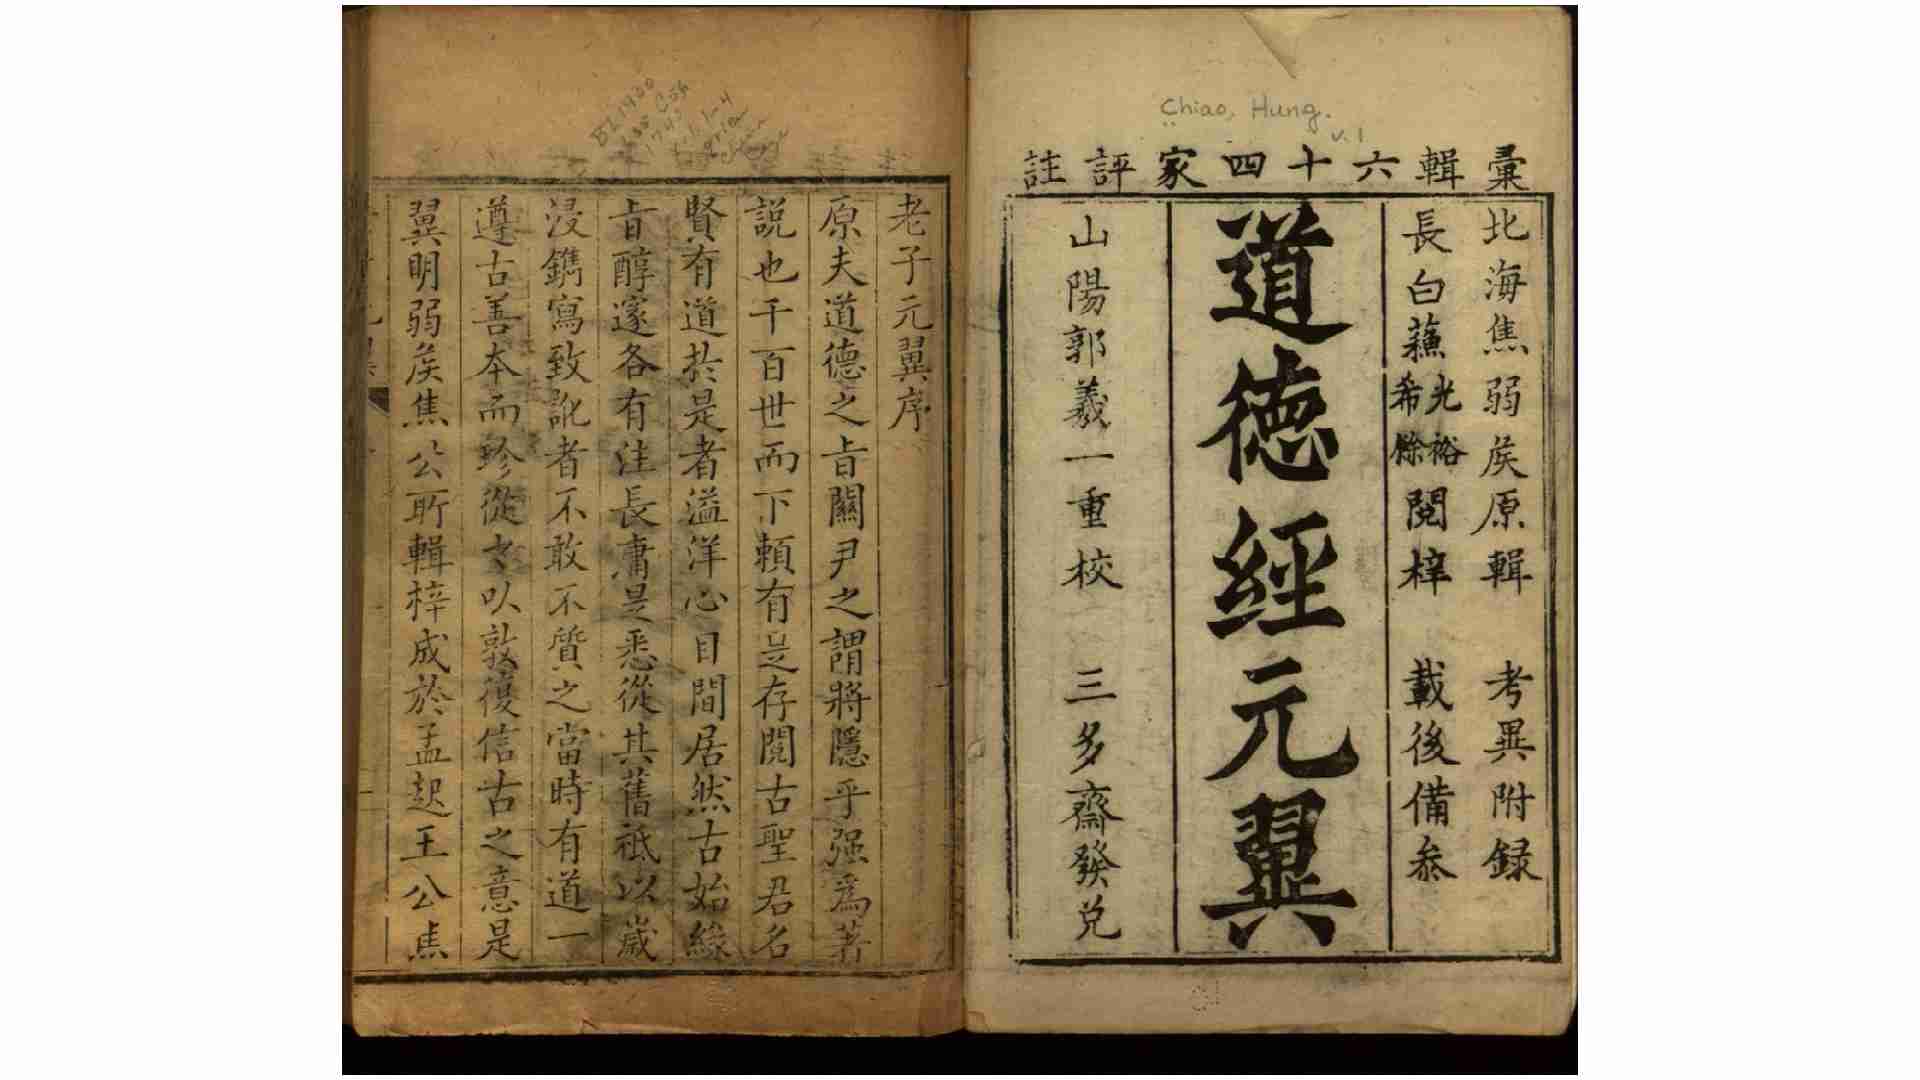 Chiao, Hung.
v.1
彙輯六十四家評註
北海焦弱矦原輯 考異附録
長白蘓光裕希餘閱梓 載後備叅
道德經元翼
山陽郭羲一重校 三多齋發兑
BL1900
1743
v.1-4
老子元翼序
原夫道德之旨關尹之謂將隱乎强爲著
説也千百世而下頼有是存閱古聖君名
賢有道扵是者溢洋心目間居然古始緣
旨醇邃各有注長庸是悉從其舊祗以歲
浸鐫寫致訛者不敢不質之當時有道一
遵古善本而珍從以敦復信古之意是
翼明弱矦焦公所輯梓成於孟起王公焦